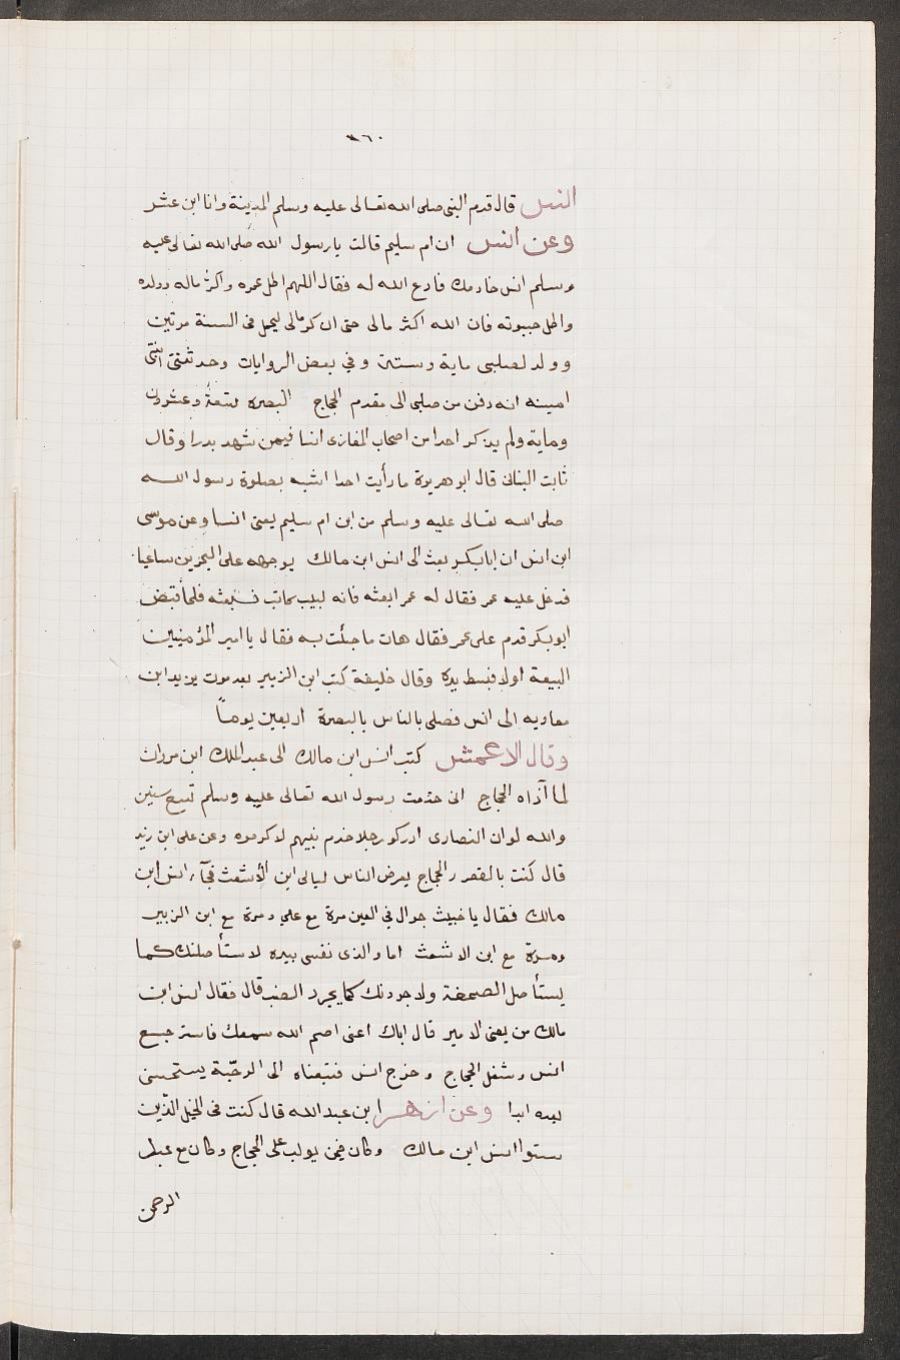 ٣٦٠
انس قال قدم النبى صلى الله تعالى عليه وسلم المدينة وانا ابن عشر
وعن انس ان ام سليم قالت يا رسول الله صلى الله تعالى عليه
وسلم انس خادمك فادع الله له فقال اللهم اطل عمره واكثر ماله وولده
واطل حيوته فان الله اكثر مالى حتى ان كرمالى ليحمل فى السنة مرتين
وولد لصلبى ماية وستة وفي بعض الروايات وحدثتنى ابنتى
امينه انه دفن من صلبى الى مقدم الحجاج البصره تسعة وعشرون
وماية ولم يذكر احد من اصحاب المغازى انسا فيمن شهد بدرا وقال
ثابت البنانى قال ابو هريرة ما رأيت احدا اشبه بصلوة رسول الله
صلى الله تعالى عليه وسلم من ابن ام سليم يعنى انسا وعن موسى
ابن انس ان ابابكر بعث الى انس ابن مالك يوجهه على البحرين ساعيا
فدخل عليه عمر فقال له عمر ابعثه فانه لبيب كاتب فبعثه فلما قبض
ابوبكر قدم على عمر فقال هات ما جئت به فقال يا امير المؤمنين
البيعة اولا فبسط يده وقال خليفة كتب ابن الزبير بعد موت يزيد ابن
معاويه الى انس فصلى بالناس بالبصرة اربعين يوماً
وقال الاعمش كتب انس ابن مالك الى عبد الملك ابن مروان
لما آذاه الحجاج انى خدمت رسول الله تعالى عليه وسلم تسع سنين
والله لو ان النصارى ادركو رجلا خدم نبيهم لاكرموه وعن على ابن زيد
قال كنت بالقصر والحجاج يعرض الناس ليالى ابن الأشعث فجآء انس ابن
مالك فقال يا خبيث جوال في الفين مرة مع علي ومرة مع ابن الزبير
ومرة مع ابن الاشعث اما والذى نفسى بيده لاستأصلنك كما
يستأصل الصمغة ولاجردنك كما يجرد الضب قال فقال انس ابن
مالك من يعنى الامير قال اياك اعنى اصم الله سمعك فاسترجع
انس وشغل الحجاج وخرج انس فتبعناه الى الرحبة
ابدا وعن ازهر ابن عبد الله قال كنت فى الخيل الذين
انس ابن مالك وكان فيمن يولب على الحجاج وكان مع عبد
الرحمن